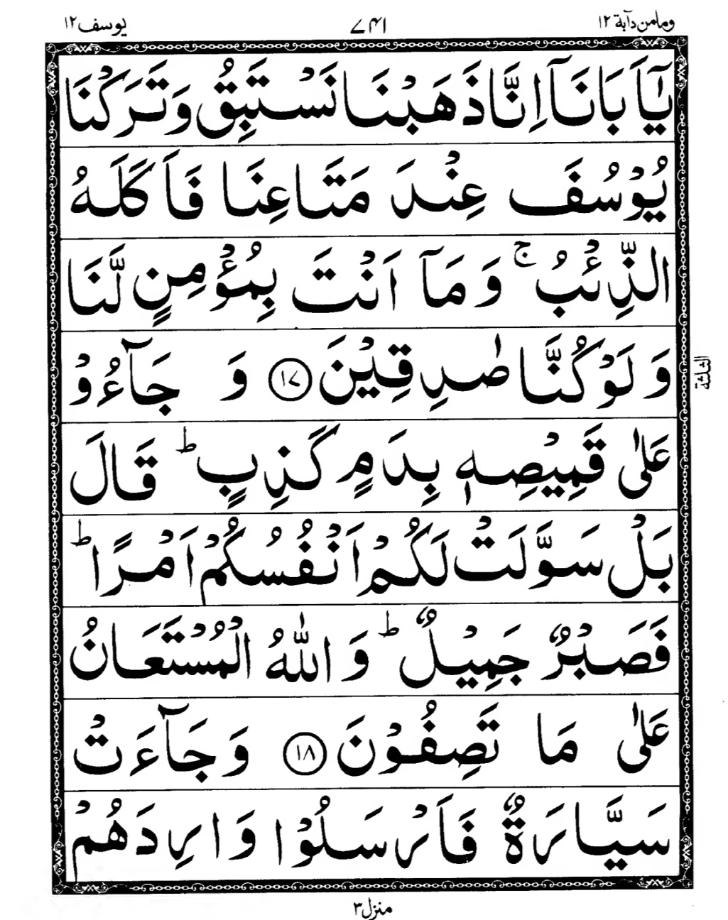 ومامن دآبة ١٢ ٧٤١ يوسف ١٢
يٰۤاَبَانَاۤ اِنَّا ذَهَبْنَا نَسْتَبِقُ وَتَرَكْنَا
يُوْسُفَ عِنْدَ مَتَاعِنَا فَاَكَلَهُ
الذِّئْبُ ۚ وَمَاۤ اَنْتَ بِمُؤْمِنٍ لَّنَا
وَلَوْ كُنَّا صٰدِقِيْنَ ١٧ وَ جَآءُوْ
عَلٰى قَمِيْصِهٖ بِدَمٍ كَذِبٍ ؕ قَالَ
بَلْ سَوَّلَتْ لَكُمْ اَنْفُسُكُمْ اَمْرًا ؕ
فَصَبْرٌ جَمِيْلٌ ؕ وَاللّٰهُ الْمُسْتَعَانُ
عَلٰى مَا تَصِفُوْنَ ١٨ وَجَآءَتْ
سَيَّارَةٌ فَاَرْسَلُوْا وَارِدَهُمْ
الثلثة
منزل ٣